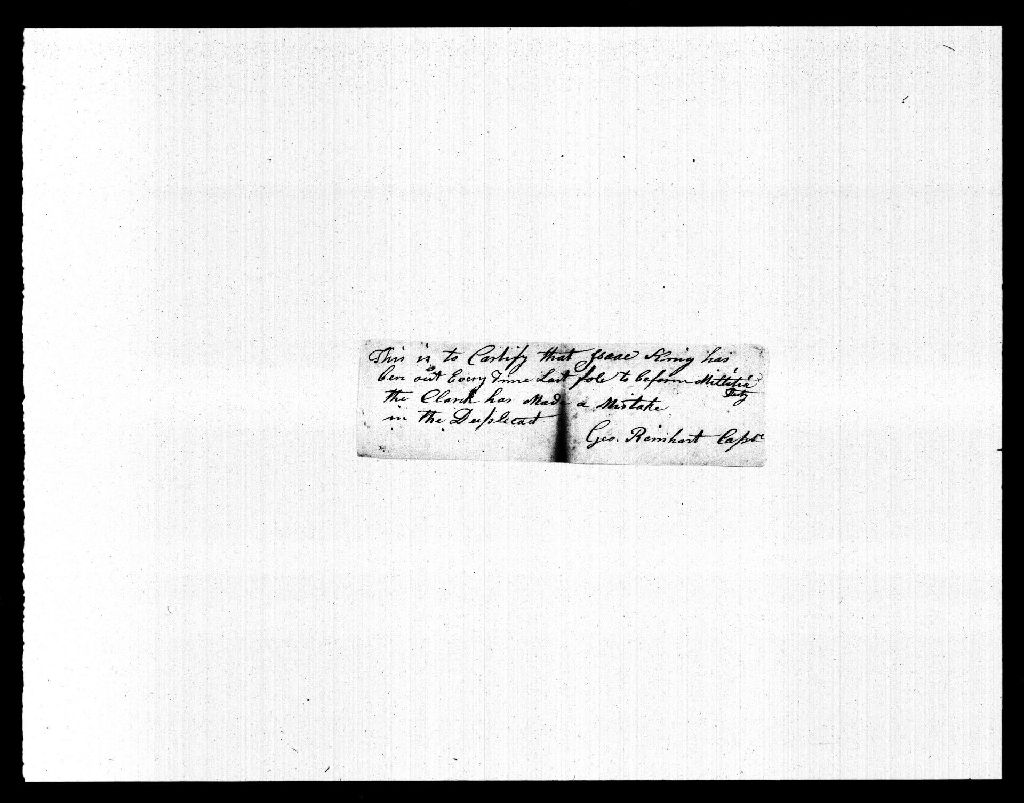 This is to Certify that Isaac King has
ben out Every Time Last to Militia
Duty
the Clark has Made a Mistake
in the Duplecat
Geo. Reinhart Capt